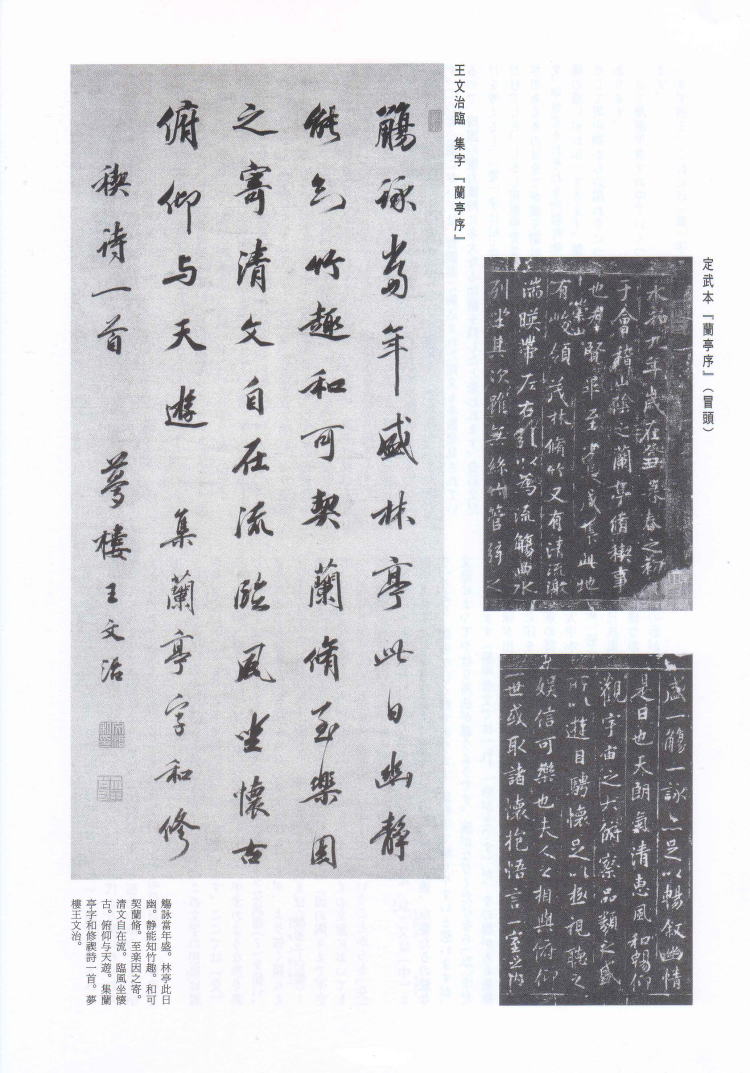 定武本『蘭亭序』(冒頭)
永和九年歲在癸丑暮春之初
于會稽山陰之蘭亭脩禊事
也羣賢畢至少長咸集此地
有崇山峻領茂林脩竹又有清流激
湍暎帶左右引以為流觴曲水
列坐其次雖無絲竹管弦之
盛一觴一詠亦足以暢叙幽情
是日也天朗氣清惠風和暢仰
觀宇宙之大俯察品類之盛
所以遊目騁懷足以極視聽之
娛信可樂也夫人之相與俯仰
一世或取諸懷抱悟言一室之內
王文治臨 集字『蘭亭序』
觴詠當年盛林亭此日幽靜
能知竹趣和可契蘭脩至樂因
之寄清文自在流臨風坐懷古
俯仰与天遊 集蘭亭字和修
禊詩一首 夢樓王文治
觴詠當年盛。林亭此日
幽。静能知竹趣。和可
契蘭脩。至楽因之寄。
清文自在流。臨風坐懐
古。俯仰与天遊。集蘭
亭字和修禊詩一首。夢
樓王文治。